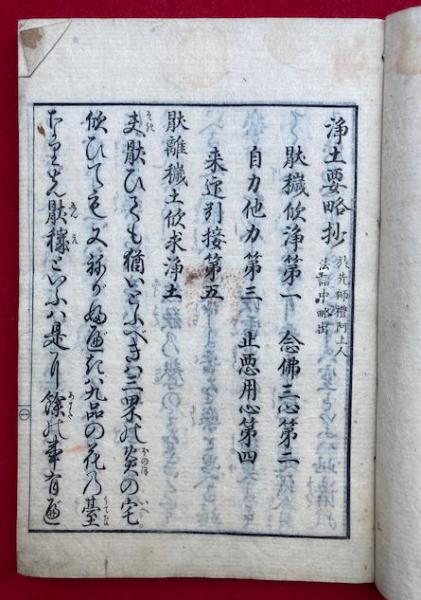 浄土要略抄 於先師禮阿上人法語中略出
厭穢欣浄第一 念佛三心第二
自力他力第三 止悪用心第四
来迎引接第五
厭離穢土欣求浄土
夫厭ひても猶いとふべきハ三界の炎の宅
欣ひても又ねがふべきハ九品の花の臺
なり先厭穢といふハ是に餘の事有べ